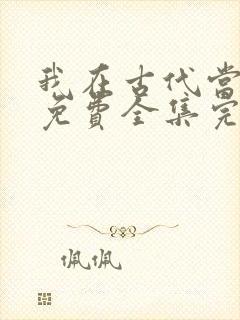 我在古代當
免費全集完
佩佩